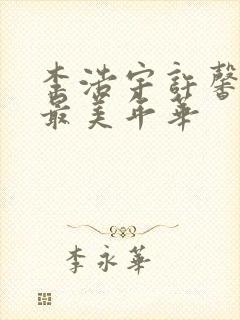 李浩宇許馨
最美年華
李永華